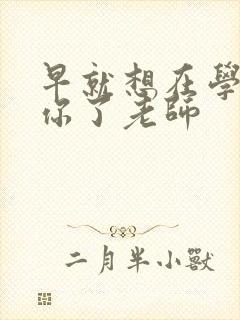 早就想在學
你了老師
二月半小獸